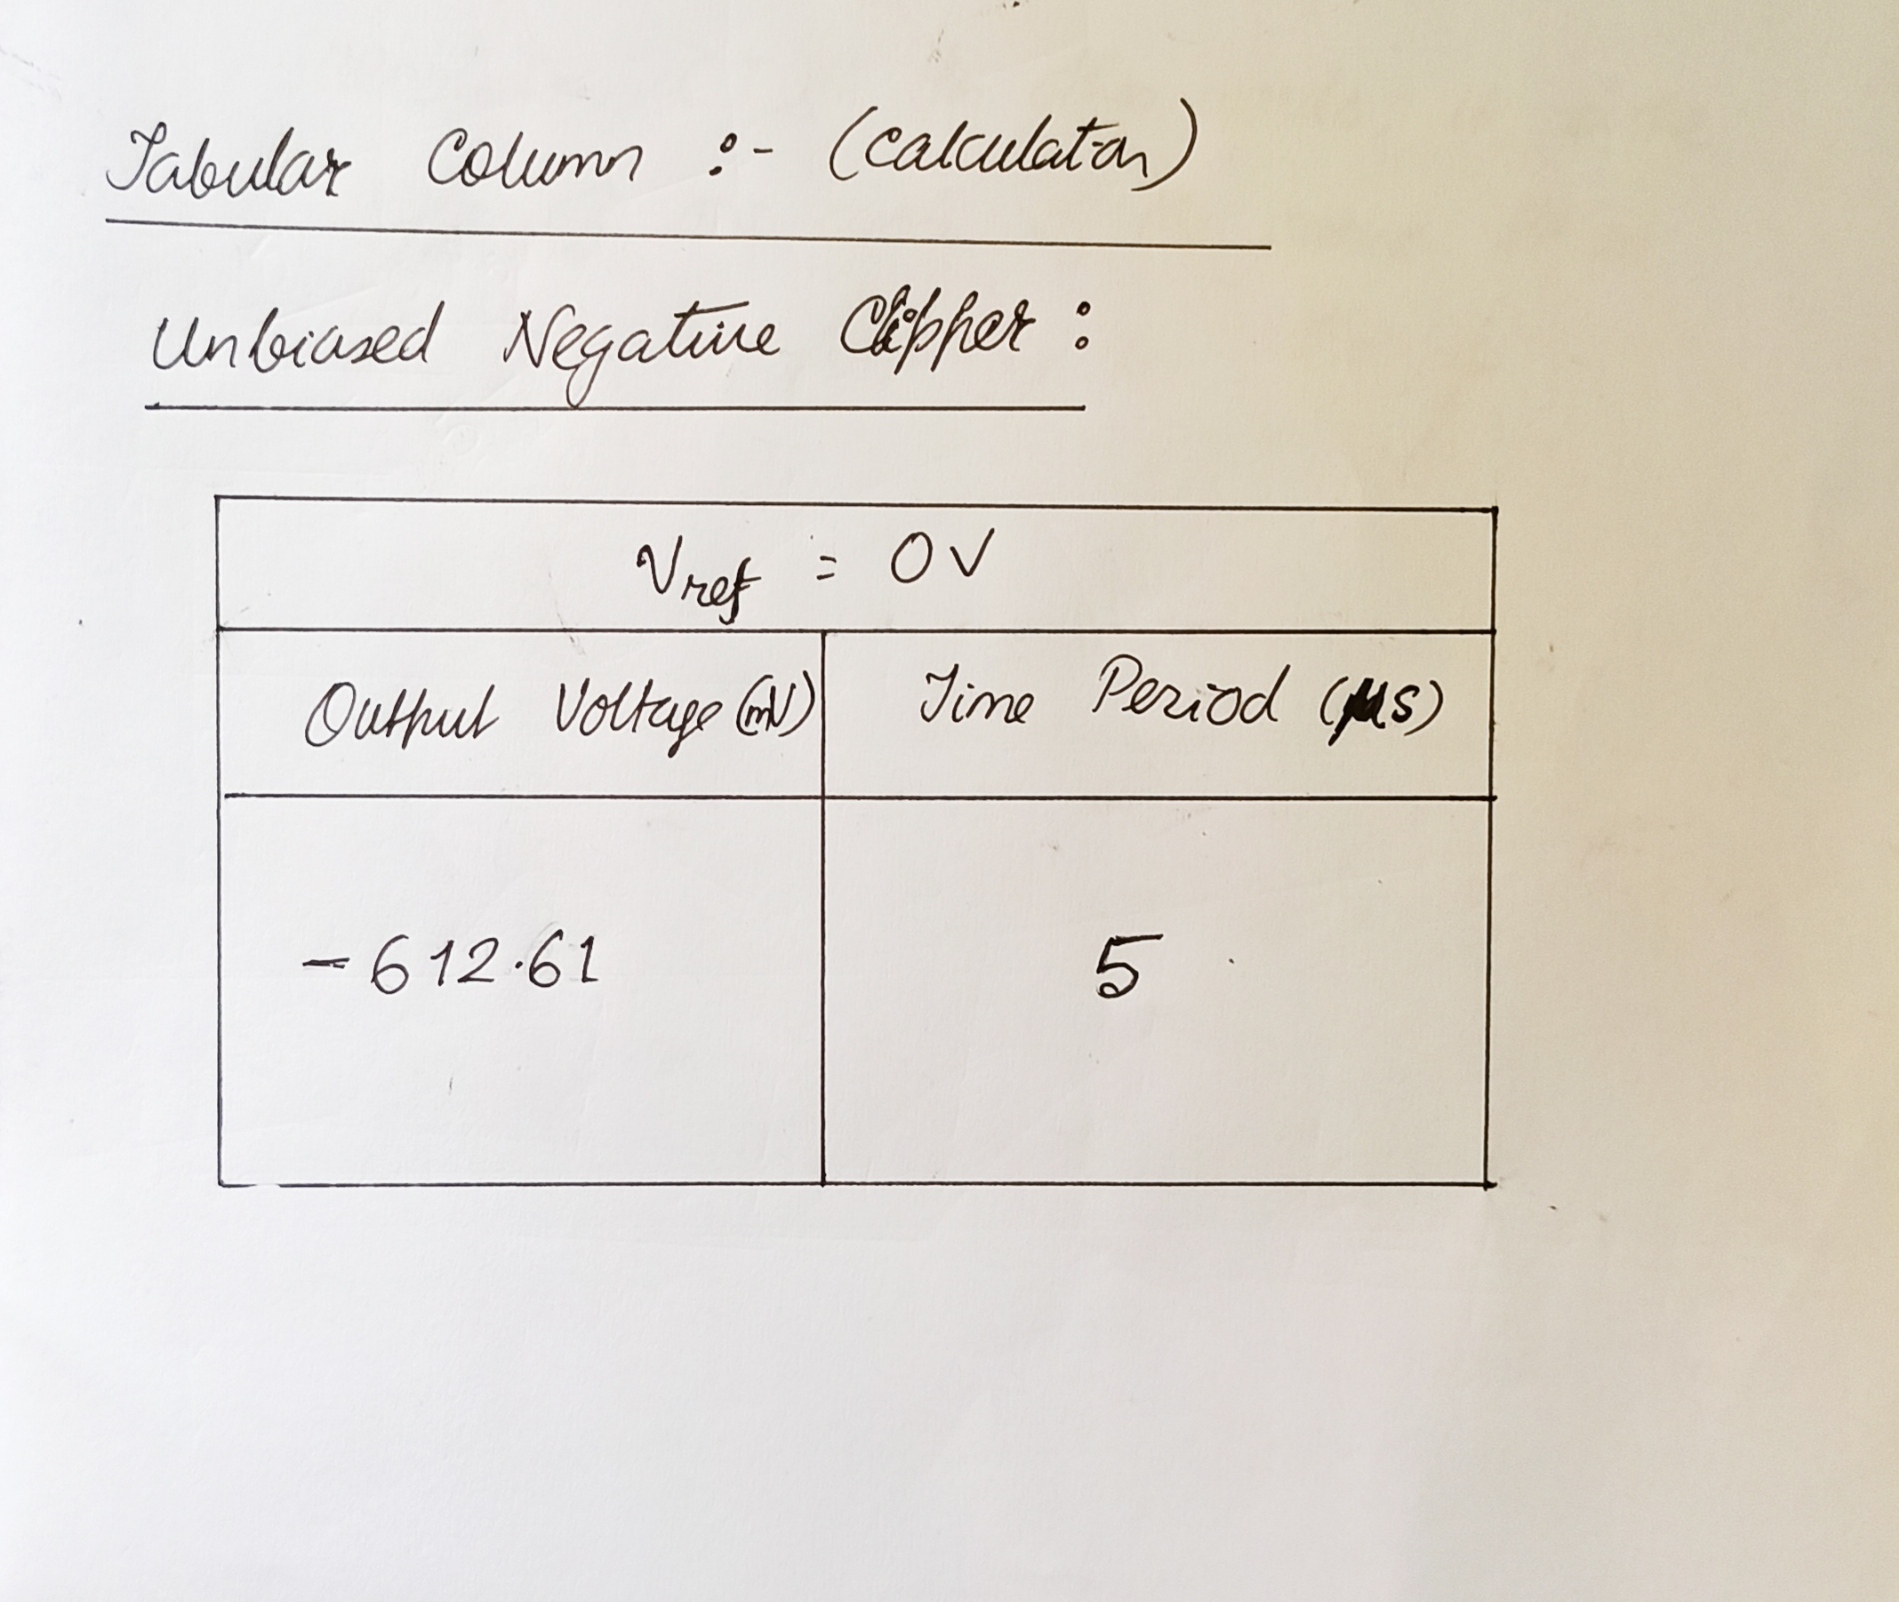 Tabular Column :- (Calculation)
Unbiased Negative Clipper :
Vref = 0V
Output Voltage (mV) Time Period (μs)
-612.61 5